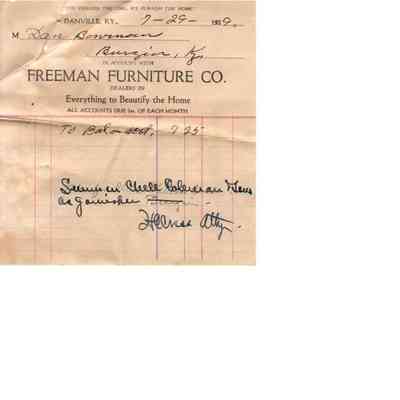 "YOU FURNISH THE GIRL, WE FURNISH THE HOME"
DANVILLE, KY., 7-29- 1929.
M Dan Bowman
Burgin, Ky.
IN ACCOUNT WITH
FREEMAN FURNITURE CO.
DEALERS IN
Everything to Beautify the Home
ALL ACCOUNTS DUE 1st. OF EACH MONTH
To Bal on acct, 9 25
Summon
as garnishee
Atty.